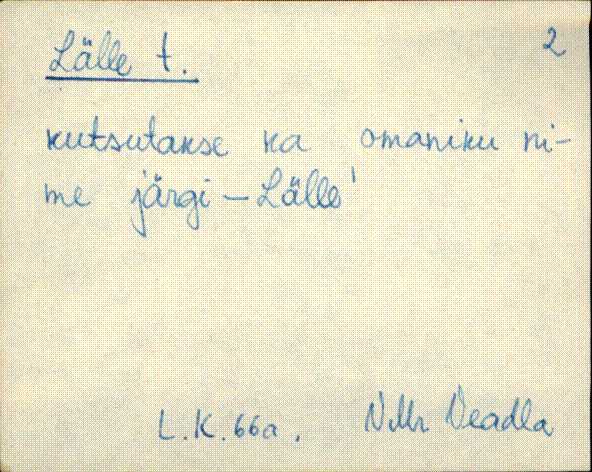 Lälle t. 2
kutsutakse ka omaniku ni-
me järgi – Lälle'
L.K. 66a. VMr Veadla